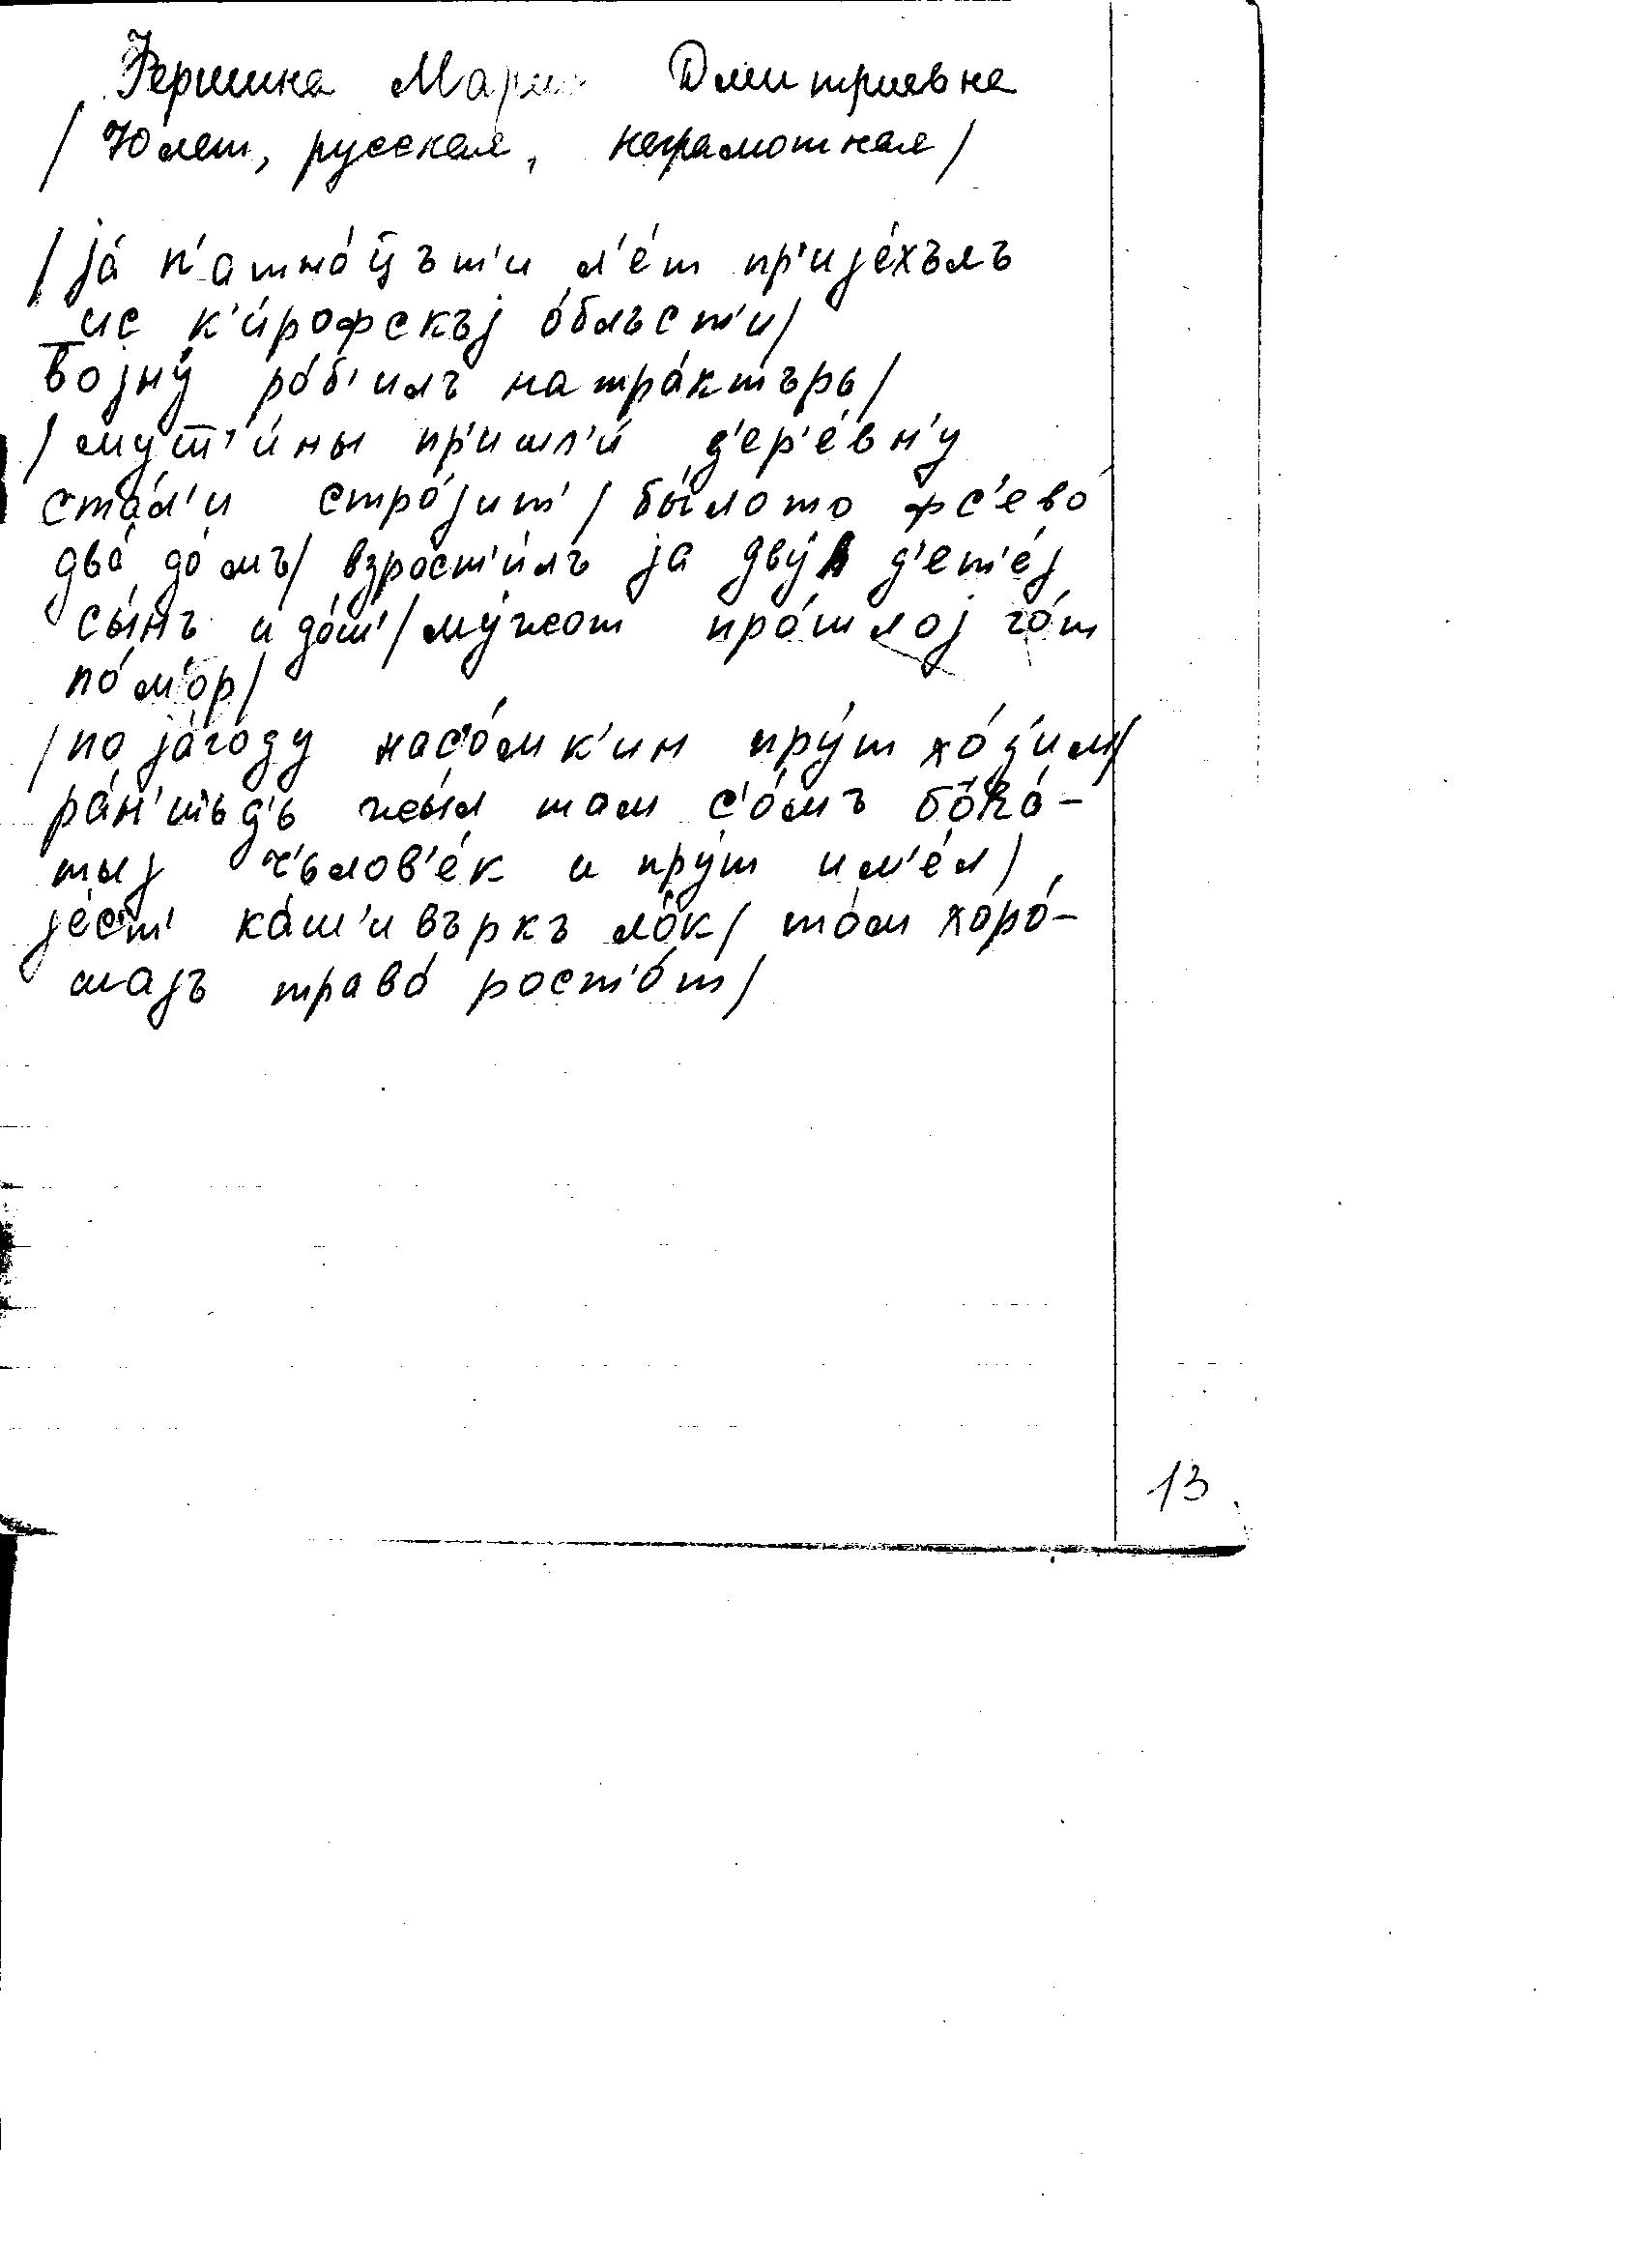 Фершина Мария Дмитриевна
/70 лет, русская, неграмотная/
/jа́ п'атна́ц̄ът'и л'е́т пр'ијéхълъ
ис к'и́рофскъј о́блъст'и/
војну́ ро́б'илъ на тра́ктърь/
/мут̄'и́ны пр'ишл'и́ д'ер'е́вн'у
ста́л'и стро́јит'/ бы́лото фс'ево́
два́ до́мъ/ взрост'и́лъ ја дву́х д'ет'е́ј
сы́нъ и до́ш'/ му́жот про́шлој го́т
по́м'ор/
/по já́году насо́мк'ин пру́т хо́д'им/
ра́н'ш̄ьд'ь жы́л там с'о́мъ бога́-
тыј ч'ьлов'е́к и пру́т им'е́л/
је́ст' каш'ивъркъ ло́к/ та́м хоро́-
шајъ трава́ рост'о́т/
13